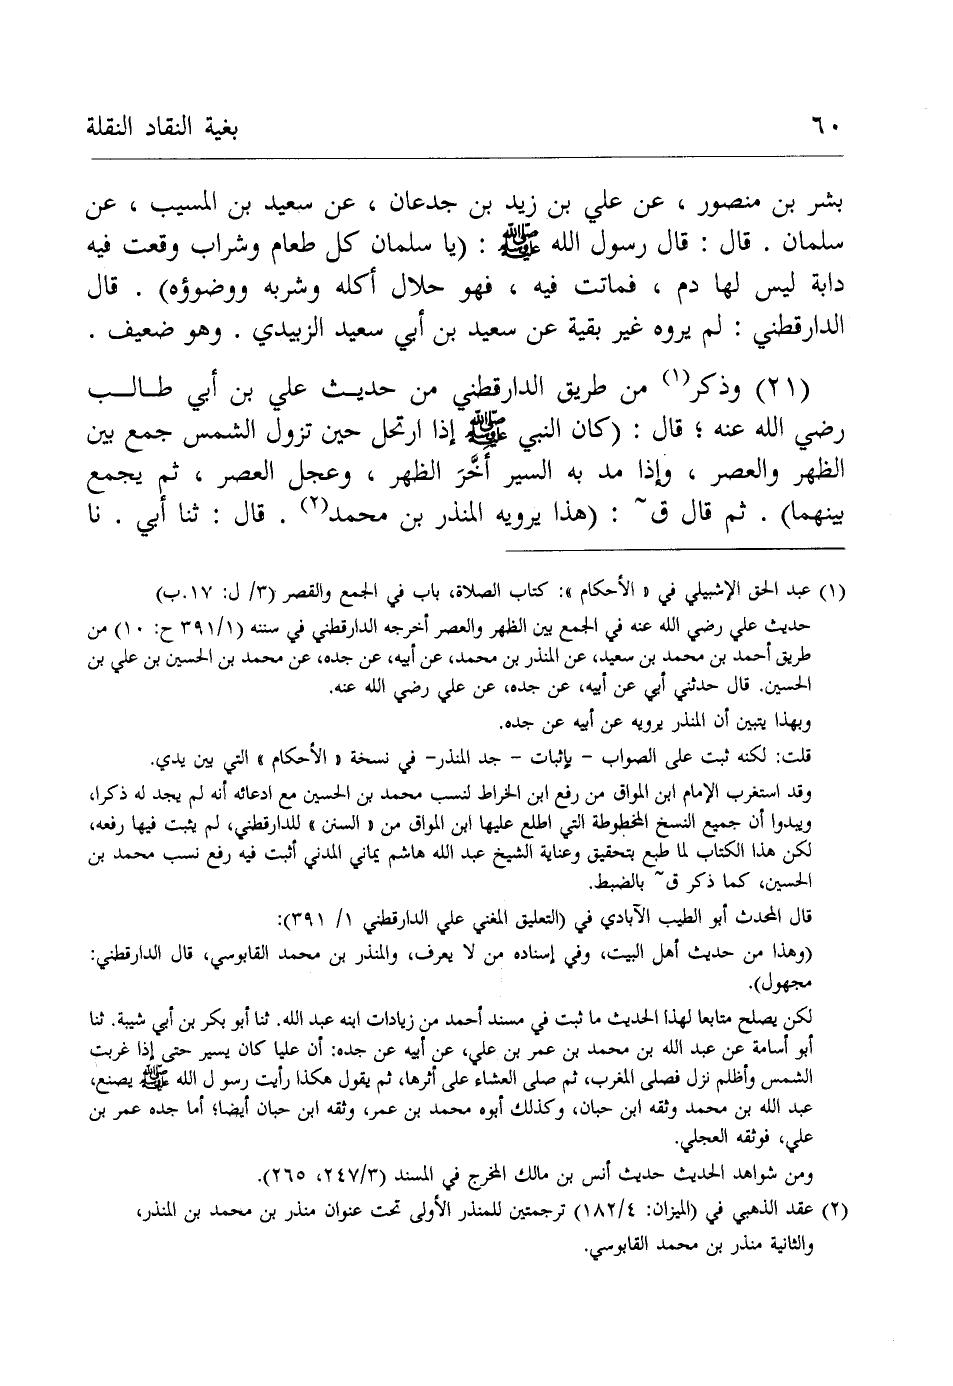 ٦٠ بغية النقاد النقلة
بشر بن منصور ، عن علي بن زيد بن جدعان ، عن سعيد بن المسيب ، عن
سلمان . قال : قال رسول الله ﷺ : (يا سلمان كل طعام وشراب وقعت فيه
دابة ليس لها دم ، فماتت فيه ، فهو حلال أكله وشربه ووضوؤه) . قال
الدارقطني : لم يروه غير بقية عن سعيد بن أبي سعيد الزبيدي . وهو ضعيف .
(٢١) وذكر(١) من طريق الدارقطني من حديث علي بن أبي طالب
رضي الله عنه ؛ قال : (كان النبي ﷺ إذا ارتحل حين تزول الشمس جمع بين
الظهر والعصر ، وإذا مد به السير أخَّرَ الظهر ، وعجل العصر ، ثم يجمع
بينهما) . ثم قال ق~ : (هذا يرويه المنذر بن محمد(٢) . قال : ثنا أبي . نا
(١) عبد الحق الإشبيلي في « الأحكام »: كتاب الصلاة، باب في الجمع والقصر (٣/ ل: ١٧.ب)
حديث علي رضي الله عنه في الجمع بين الظهر والعصر أخرجه الدارقطني في سننه (٣٩١/١ ح: ١٠) من
طريق أحمد بن محمد بن سعيد، عن المنذر بن محمد، عن أبيه، عن جده، عن محمد بن الحسين بن علي بن
الحسين. قال حدثني أبي عن أبيه، عن جده، عن علي رضي الله عنه.
وبهذا يتبين أن المنذر يرويه عن أبيه عن جده.
قلت: لكنه ثبت على الصواب - بإثبات - جد المنذر- في نسخة « الأحكام » التي بين يدي.
وقد استغرب الإمام ابن المواق من رفع ابن الخراط لنسب محمد بن الحسين مع ادعائه أنه لم يجد له ذكرا،
ويبدوا أن جميع النسخ المخطوطة التي اطلع عليها ابن المواق من « السنن » للدارقطني، لم يثبت فيها رفعه،
لكن هذا الكتاب لما طبع بتحقيق وعناية الشيخ عبد الله هاشم يماني المدني أثبت فيه رفع نسب محمد بن
الحسين، كما ذكر ق~ بالضبط.
قال المحدث أبو الطيب الآبادي في (التعليق المغني علي الدارقطني ١/ ٣٩١):
(وهذا من حديث أهل البيت، وفي إسناده من لا يعرف، والمنذر بن محمد القابوسي، قال الدارقطني:
مجهول).
لكن يصلح متابعا لهذا الحديث ما ثبت في مسند أحمد من زيادات ابنه عبد الله. ثنا أبو بكر بن أبي شيبة. ثنا
أبو أسامة عن عبد الله بن محمد بن عمر بن علي، عن أبيه عن جده: أن عليا كان يسير حتى إذا غربت
الشمس وأظلم نزل فصلى المغرب، ثم صلى العشاء على أثرها، ثم يقول هكذا رأيت رسو ل الله ﷺ يصنع،
عبد الله بن محمد وثقه ابن حبان، وكذلك أبوه محمد بن عمر، وثقه ابن حبان أيضا؛ أما جده عمر بن
علي، فوثقه العجلي.
ومن شواهد الحديث حديث أنس بن مالك المخرج في المسند (٢٤٧/٣، ٢٦٥).
(٢) عقد الذهبي في (الميزان: ١٨٢/٤) ترجمتين للمنذر الأولى تحت عنوان منذر بن محمد بن المنذر،
والثانية منذر بن محمد القابوسي.